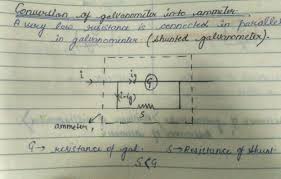 Conversion of galvanometer into ammeter
A very low resistance is connected in parallel
in galvanometer (shunted galvanometer).
i
ig
G
(i-ig)
S
ammeter
G → resistance of gal. S → Resistance of shunt
S<G